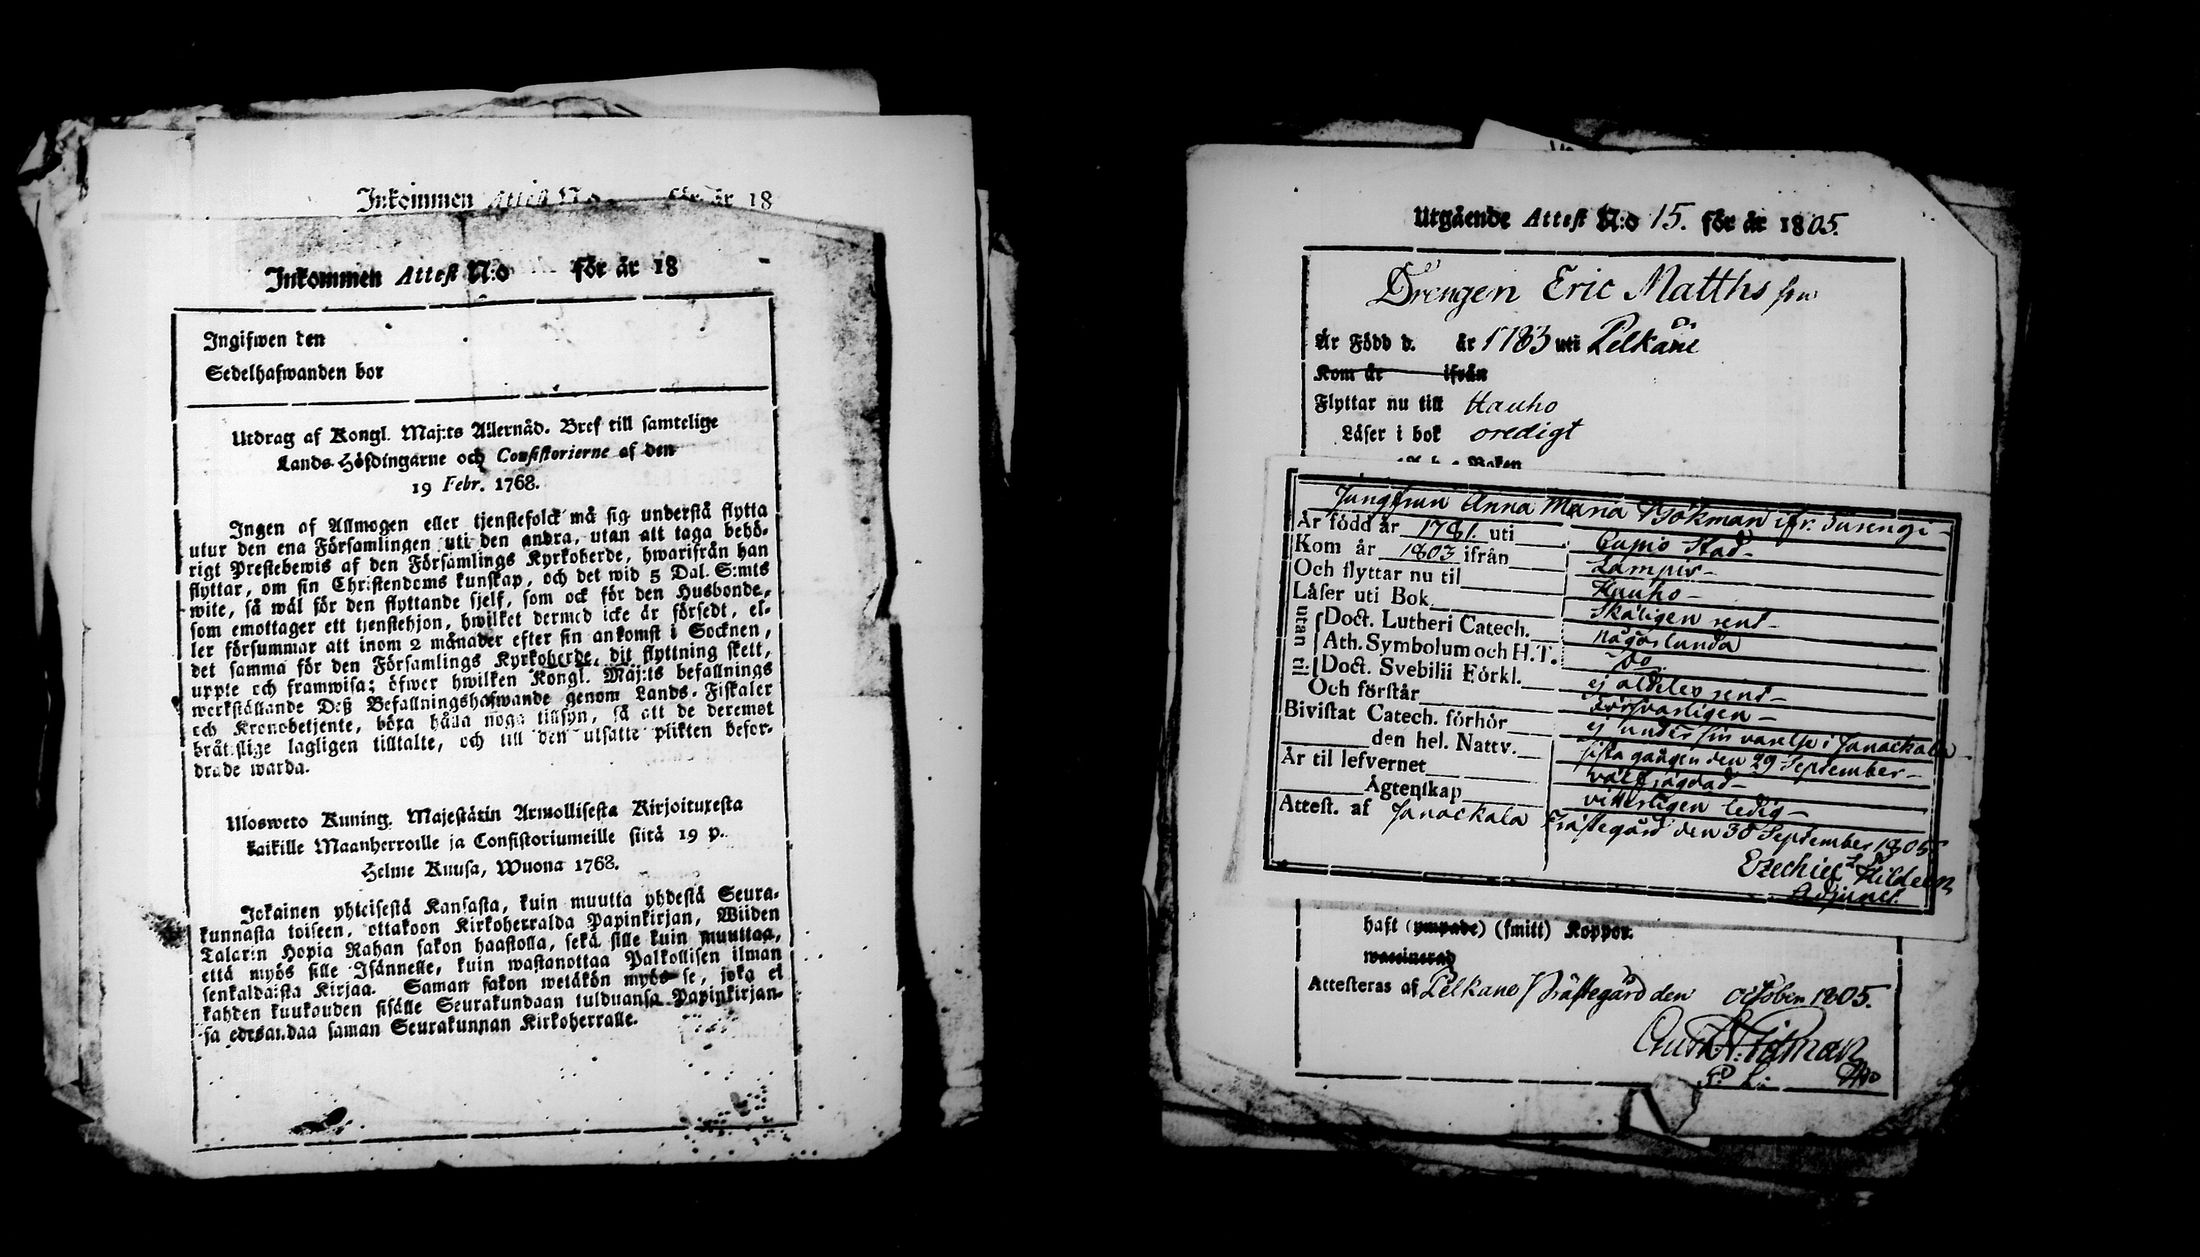 Inkommen Attest N:o för år 18
Inkommen Attest N:o för år 18
Ingifwen den
Sedelhafwanden bor
Utdrag af Kongl. Maj:ts Allernåd. Bref till samtelige
Lands-Höfdingarne och Consistorierne af den
19 Febr. 1768.
Ingen af Allmogen eller tjenstefolck må sig understå flytta
utur den ena Församlingen uti den andra, utan att taga behö-
rigt Prestebewis af den Församlings Kyrkoherde, hwarifrån han
flyttar, om sin Christendoms kunskap, och det wid 5 Dal. S:mts
wite, så wäl för den flyttande sjelf, som ock för den Husbonde,
som emottager ett tjenstehjon, hwilket dermed icke är försedt, el-
ler försummar att inom 2 månader efter sin ankomst i Socknen,
det samma för den Församlings Kyrkoherde, dit flyttning skett,
uppte och framwisa; öfwer hwilken Kongl. Maj:ts befallnings
werkställande Deß Befallningshafwande genom Lands-Fiskaler
och Kronobetjente, böra hålla noga tillsyn, så att de deremot
brottslige lagligen tilltalte, och till den utsatte plikten befor-
drade warda.
Ulosweto Kuning. Majestätin Armollisesta Kirjoituxesta
kaikille Maanherroille ja Consistoriumeille siitä 19 p.
Helme Kuusa, Wuona 1768.
Jokainen yhteisestä Kansasta, kuin muutta yhdestä Seura-
kunnasta toiseen, ottakoon Kirkoherralda Papinkirjan, Wiiden
Talarin Hopia Rahan sakon haastolla, sekä sille kuin muuttaa,
että myös sille Isännelle, kuin wastanottaa Palkollisen ilman
senkaldaista Kirjaa. Saman sakon wetäkön myös se, joka ei
kahden kuukouden sisälle Seurakundaan tulduansa Papinkirjan-
sa edesandaa saman Seurakunnan Kirkoherralle.
Utgående Attest N:o 15. för år 1805.
Drengen Eric Matths son
Är Född d. år 1783 uti Pelkäne
Kom år ifrån
Flyttar nu till Hauho
Läser i bok oredigt
Boken
Jungfrun Anna Maria Bökman ifr.
År född år 1781. uti Cupio Stad
Kom år 1803 ifrån Lampis
Och flyttar nu til Hauho
Läser uti Bok Skäligen rent
utan til: Doct. Lutheri Catech. någorlunda
Ath. Symbolum och H.T. Do
Doct. Svebilii Förkl. ej aldeles rent
Och förstår Försvarligen
Bivistat Catech. förhör ej under sin varelse i Janackala
den hel. Nattv. sista gången den 29 September
Är til lefvernet välfrägdad
Ägtenskap vitterligen ledig
Attest. af Janackala Prästegård den 30 September 1805.
Ezechiel
Adjunct.
haft (ympade) (smitt) Koppor.
waccinerad
Attesteras af Pelkäne Prästegård den october 1805.